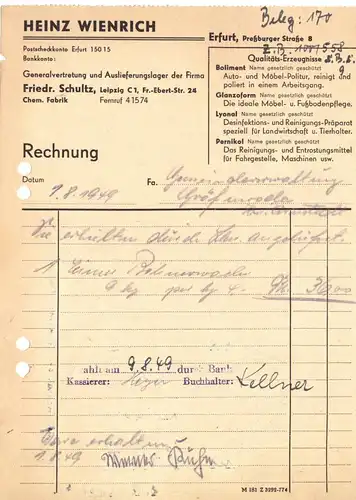 Beleg: 170
HEINZ WIENRICH
Erfurt, Preßburger Straße 8
Postscheckkonto Erfurt 150 15
Bankkonto:
Generalvertretung und Auslieferungslager der Firma
Friedr. Schultz, Leipzig C 1, Fr.-Ebert-Str. 24
Chem. Fabrik Fernruf 41574
Qualitäts-Erzeugnisse
Boliment Name gesetzlich geschützt
Auto- und Möbel-Politur, reinigt und
poliert in einem Arbeitsgang.
Glanzoform Name gesetzlich geschützt
Die ideale Möbel- u. Fußbodenpflege.
Lyonal Name gesetzlich geschützt
Desinfektions- und Reinigungs-Präparat
speziell für Landwirtschaft u. Tierhalter.
Pernikol Name gesetzlich geschützt
Das Reinigungs- und Entrostungsmittel
für Fahrgestelle, Maschinen usw.
Rechnung
Datum 1.8.1949 Fa. Gemeindeverwaltung
Sie erhielten durch
1 Eimer Bohnerwachs
9 kg per kg 4.- 36.00
ahlt am 9.8.49 durch Bank
Kassierer: Buchhalter: Kellner
Ware erhalten
1.8.49
M 181 Z 3098-774